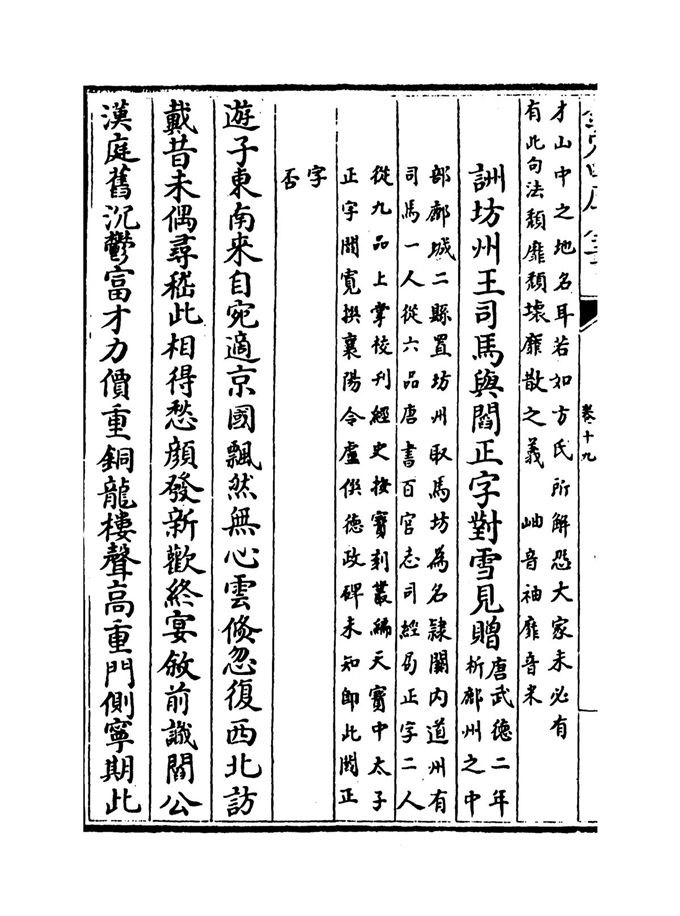 才山中之地名耳若如方氏所解恐大家未必有
有此句法頽靡頽壊靡散之義　岫音袖靡音米
詶坊州王司馬與閻正字對雪見贈唐武德二年
析鄜州之中
部鄜城二縣置坊州取馬坊為名隷關内道州有
司馬一人從六品唐書百官志司經局正字二人
從九品上掌校刋經史按寳刻叢編天寳中太子
正字閻寛撰襄陽令盧僎德政碑未知即此閻正
字
否
遊子東南來自宛適京國飄然無心雲倐忽復西北訪
戴昔未偶尋嵇此相得愁顔發新歡終宴敘前識閻公
漢庭舊沉鬱富才力價重銅龍樓聲髙重門側寧期此
卷十九